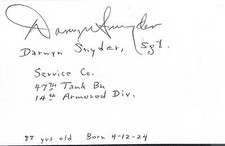 Darwyn Snyder
Darwyn Snyder, Sgt.
Service Co.
47th Tank Bn
14th Armored Div.
87 yrs old Born 4-12-24